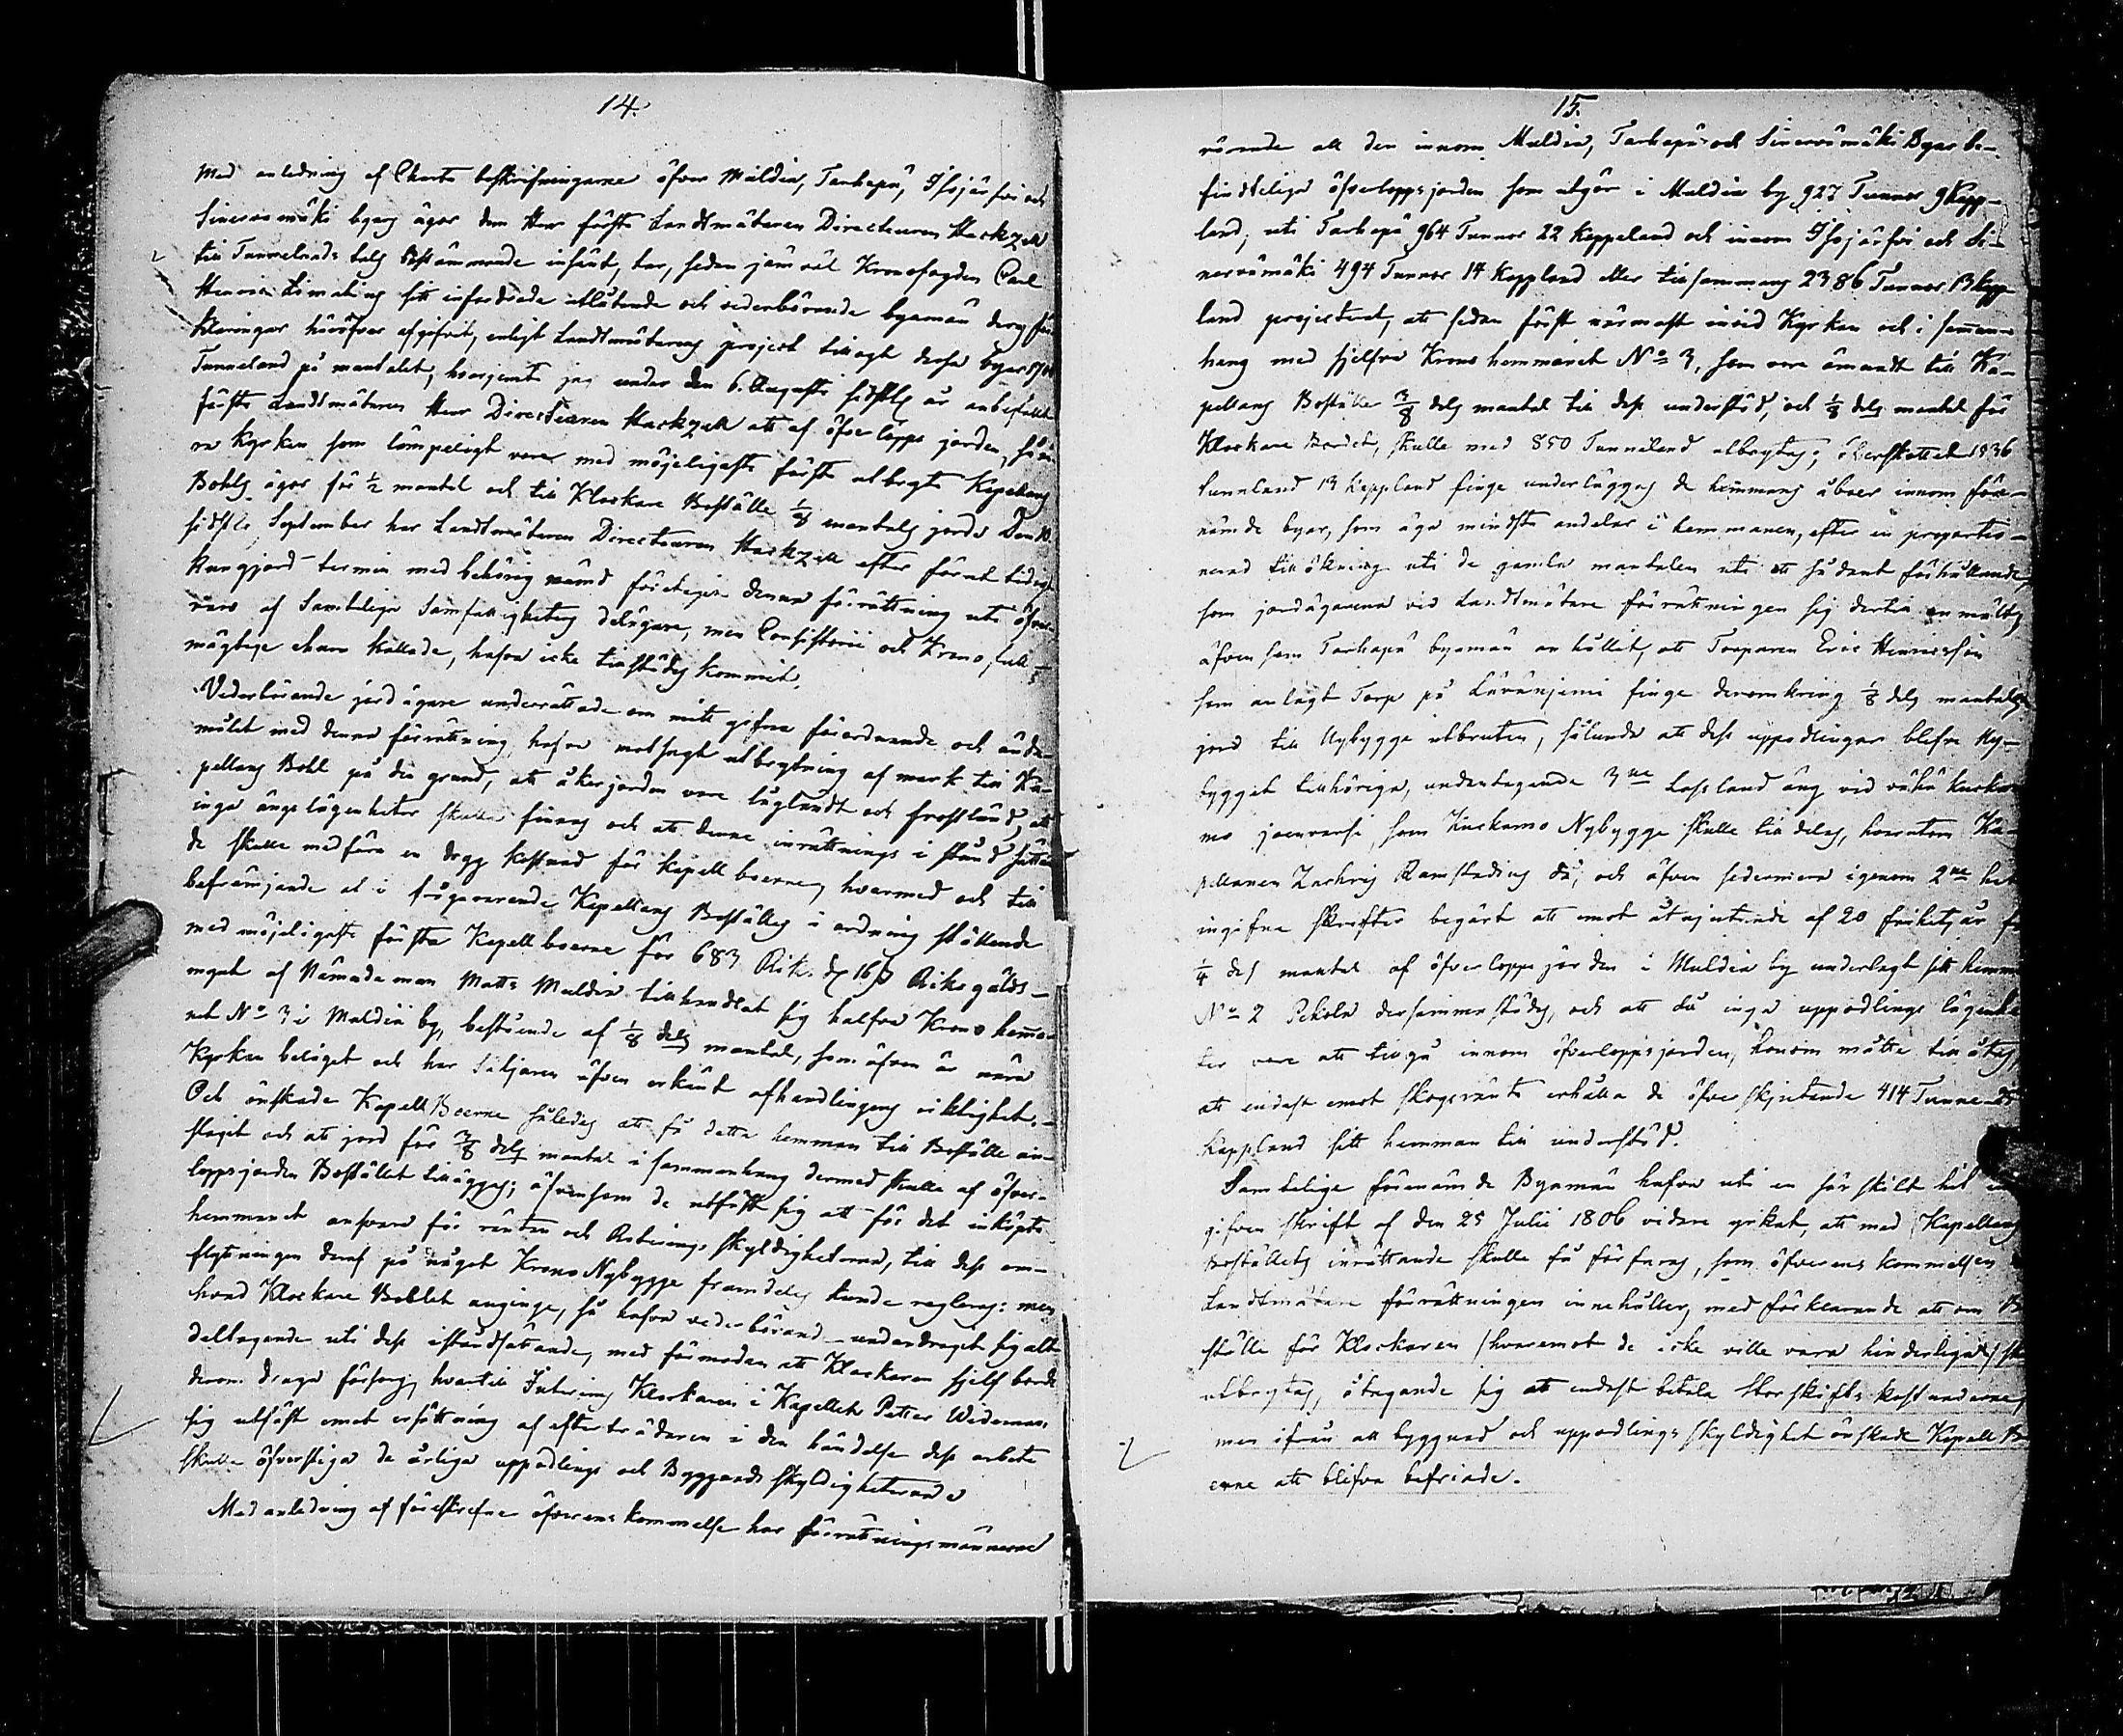 14.
Med anledning af Charte beskrifningarne öfver Muldia, Tarhapä, Ihojärfvi och
Sinervämäki byars ägor den Herr förste Landtmätaren Directeuren Hackzell
till Tunnelands tals bestämmande insändt, har, sedan jämväl Kronofogden Carl
Henric Limaling sitt infordrade utlåtande och vederbörande byamän derås för-
klaringar häröfver afgifvit, enligt Landtmätarens project tillagt dessa byar 1700
Tunneland på mantalet, hvarjemte jag under den 6. Augusti sidstl. år anbefallt
förste Landtmätaren Herr Directeuren Hackzell att af öfverlopps jorden, så nä-
ra Kyrkan som lämpeligt vore med möjeligaste första utbryta Kapellans
Bohls ägor för 1/2 mantal och till Klockare Boställe 1/8 mantals jord. Den 10.
sidstl. September har Landtmätaren Directeuren Hackzell efter förut tidigt
kungjord termin med behörig nämd företagit denna förrättning uti öfver-
varo af Samtelige Samfällighetens delägare, men Consistorii och Krono full-
mägtige ehuru kallade, hafva icke tillstädes kommit.
Vederbörande jord ägare underrättade om mitt gifna förordnande och ända-
målet med denna förrättning, hafva motsagt utbrytning af mark till Ka-
pellans Bohl på den grund, att åkerjorden vore låglandt och frostländ, att
inga ängs lägenheter skulle finnas och att denna inrättnings i stånd sättan-
de skulle medföra en dryg kostnad för Kapell boerne, hvarmed och till
befrämjande at i frågavarande Kapellans Boställes i ordning ställande
med möjeligaste första Kapellboerne för 683 Rik. dr 16 s Riksgälds-
mynt af Nämndeman Matts Muldia tillhandlat sig halfva Krono hemma-
net No 3 i Muldia by, bestående af 1/8 dels mantal, som äfven är nära
Kyrkan beläget och har säljaren äfven erkänt afhandlingens riktighet.-
Och önskade Kapell Boerne således att få detta hemman till Boställe an-
slagit och att jord för 3/8 dels mantal i sammanhang dermed skulle af öfver-
loppsjorden Bostället tilläggas; äfvensom de utfäst sig att för det inköpta
hemmanet ansvara för räntan och Roterings skyldigheterna, till dess om-
flyttningen deraf på något Krono Nybygge framdeles kunde regleras: men
hvad Klockare Bohlet anginge, så hafva vederbörand undandragit sig allt
deltagande uti dess iståndsättande, med förmodan att Klockaren sjelf borde
derom draga försorg, hvartill Interims Klockaren i Kapellet Petter Wideman
sig utfäst emot ersättning af efterträdaren i den händelse dess arbete
skulle öfverstiga de årliga uppodlings och Byggnads skyldigheterna
Med anledning af föreskrefne öfverenskommelse har förrättningsmännerne
15.
rörande all den innom Muldia, Tarhapä och Sinervämäki Byar be-
findteliga öfverloppsjorden som utgör i Muldia by 927 Tunnor 9 Kapp-
land, uti Tarhapä 964 Tunnor 22 Kappeland och innom Ihojärfvi och Si-
nervämäki 494 Tunnor 14 Kappland eller tillsammans 2386 Tunnor 13 Kapp-
land projecterat, att sedan först närmast invid Kyrkan och i samman-
hang med sjelfva Krono hemmanet No 3, som vore ämnadt till Ka-
pellans Boställe 3/8 dels mantal till dess understöd, och 1/8 dels mantal för
Klockare Bordet, skulle med 850 Tunneland utbrytas; Öfverskottet 1536
Tunnland 13 Kappland finge underläggas de hemmans åboer innom före-
nämde byar, som äga mindsta andelar i hemmanen, efter en propor̃tio-
nerad tillökning uti de gamla mantalen uti ett sådant förhållande,
som jordägarena vid Landtmätare förrättningen sig dertill anmält,
äfvensom Tarhapä byamän anhållit, att Torparen Eric Henricsson
som anlagt Torp på Lävänjemi finge deromkring 1/8 dels mantals
jord till Nybygge utbruten, sålunda att dess uppodlingar blefve Ny-
bygget tillhöriga, undantagande 3ne Lassland äng vid vähä kuckar
mo joenvarsi, som Kuckamo Nybygge skulle tilldelas, hvarutom Ka-
pellanen Zachris Ramstadius då, och äfven sedermera igenom 2ne hit
ingifne Skrifter begärt att emot åtnjutande af 20 frihetsår få
1/4 dels mantal af öfverlopps jorden i Muldia by underlagt sitt hemman
No 2 Pekola dersammastädes, och att då inga uppodlings lägenhe-
ter vore att tillgå innom öfverloppsjorden, honom måtte tillåtas
att endast emot skogsränta erhålla de öfverskjutande 414 Tunneland
Kappland sitt hemman till understöd.
Samtelige förenämde Byamän hafva uti en särskilt hit in-
gifven skrift af den 25 Julii 1806 vidare yrkat, att med Kapellans
Boställets inrättande skulle få förfaras, som öfverens kommelsen
Landtmätare förrättningen innehåller, med förklarande att om Bo-
ställe för Klockaren /hvaremot de icke ville vara hinderliga/
utbrytas, åtagande sig att endast betala Storskifts kostnaderne
men ifrån all byggnad och uppodlings skyldighet önskade Kapell Bo-
erne att blifva befriade.